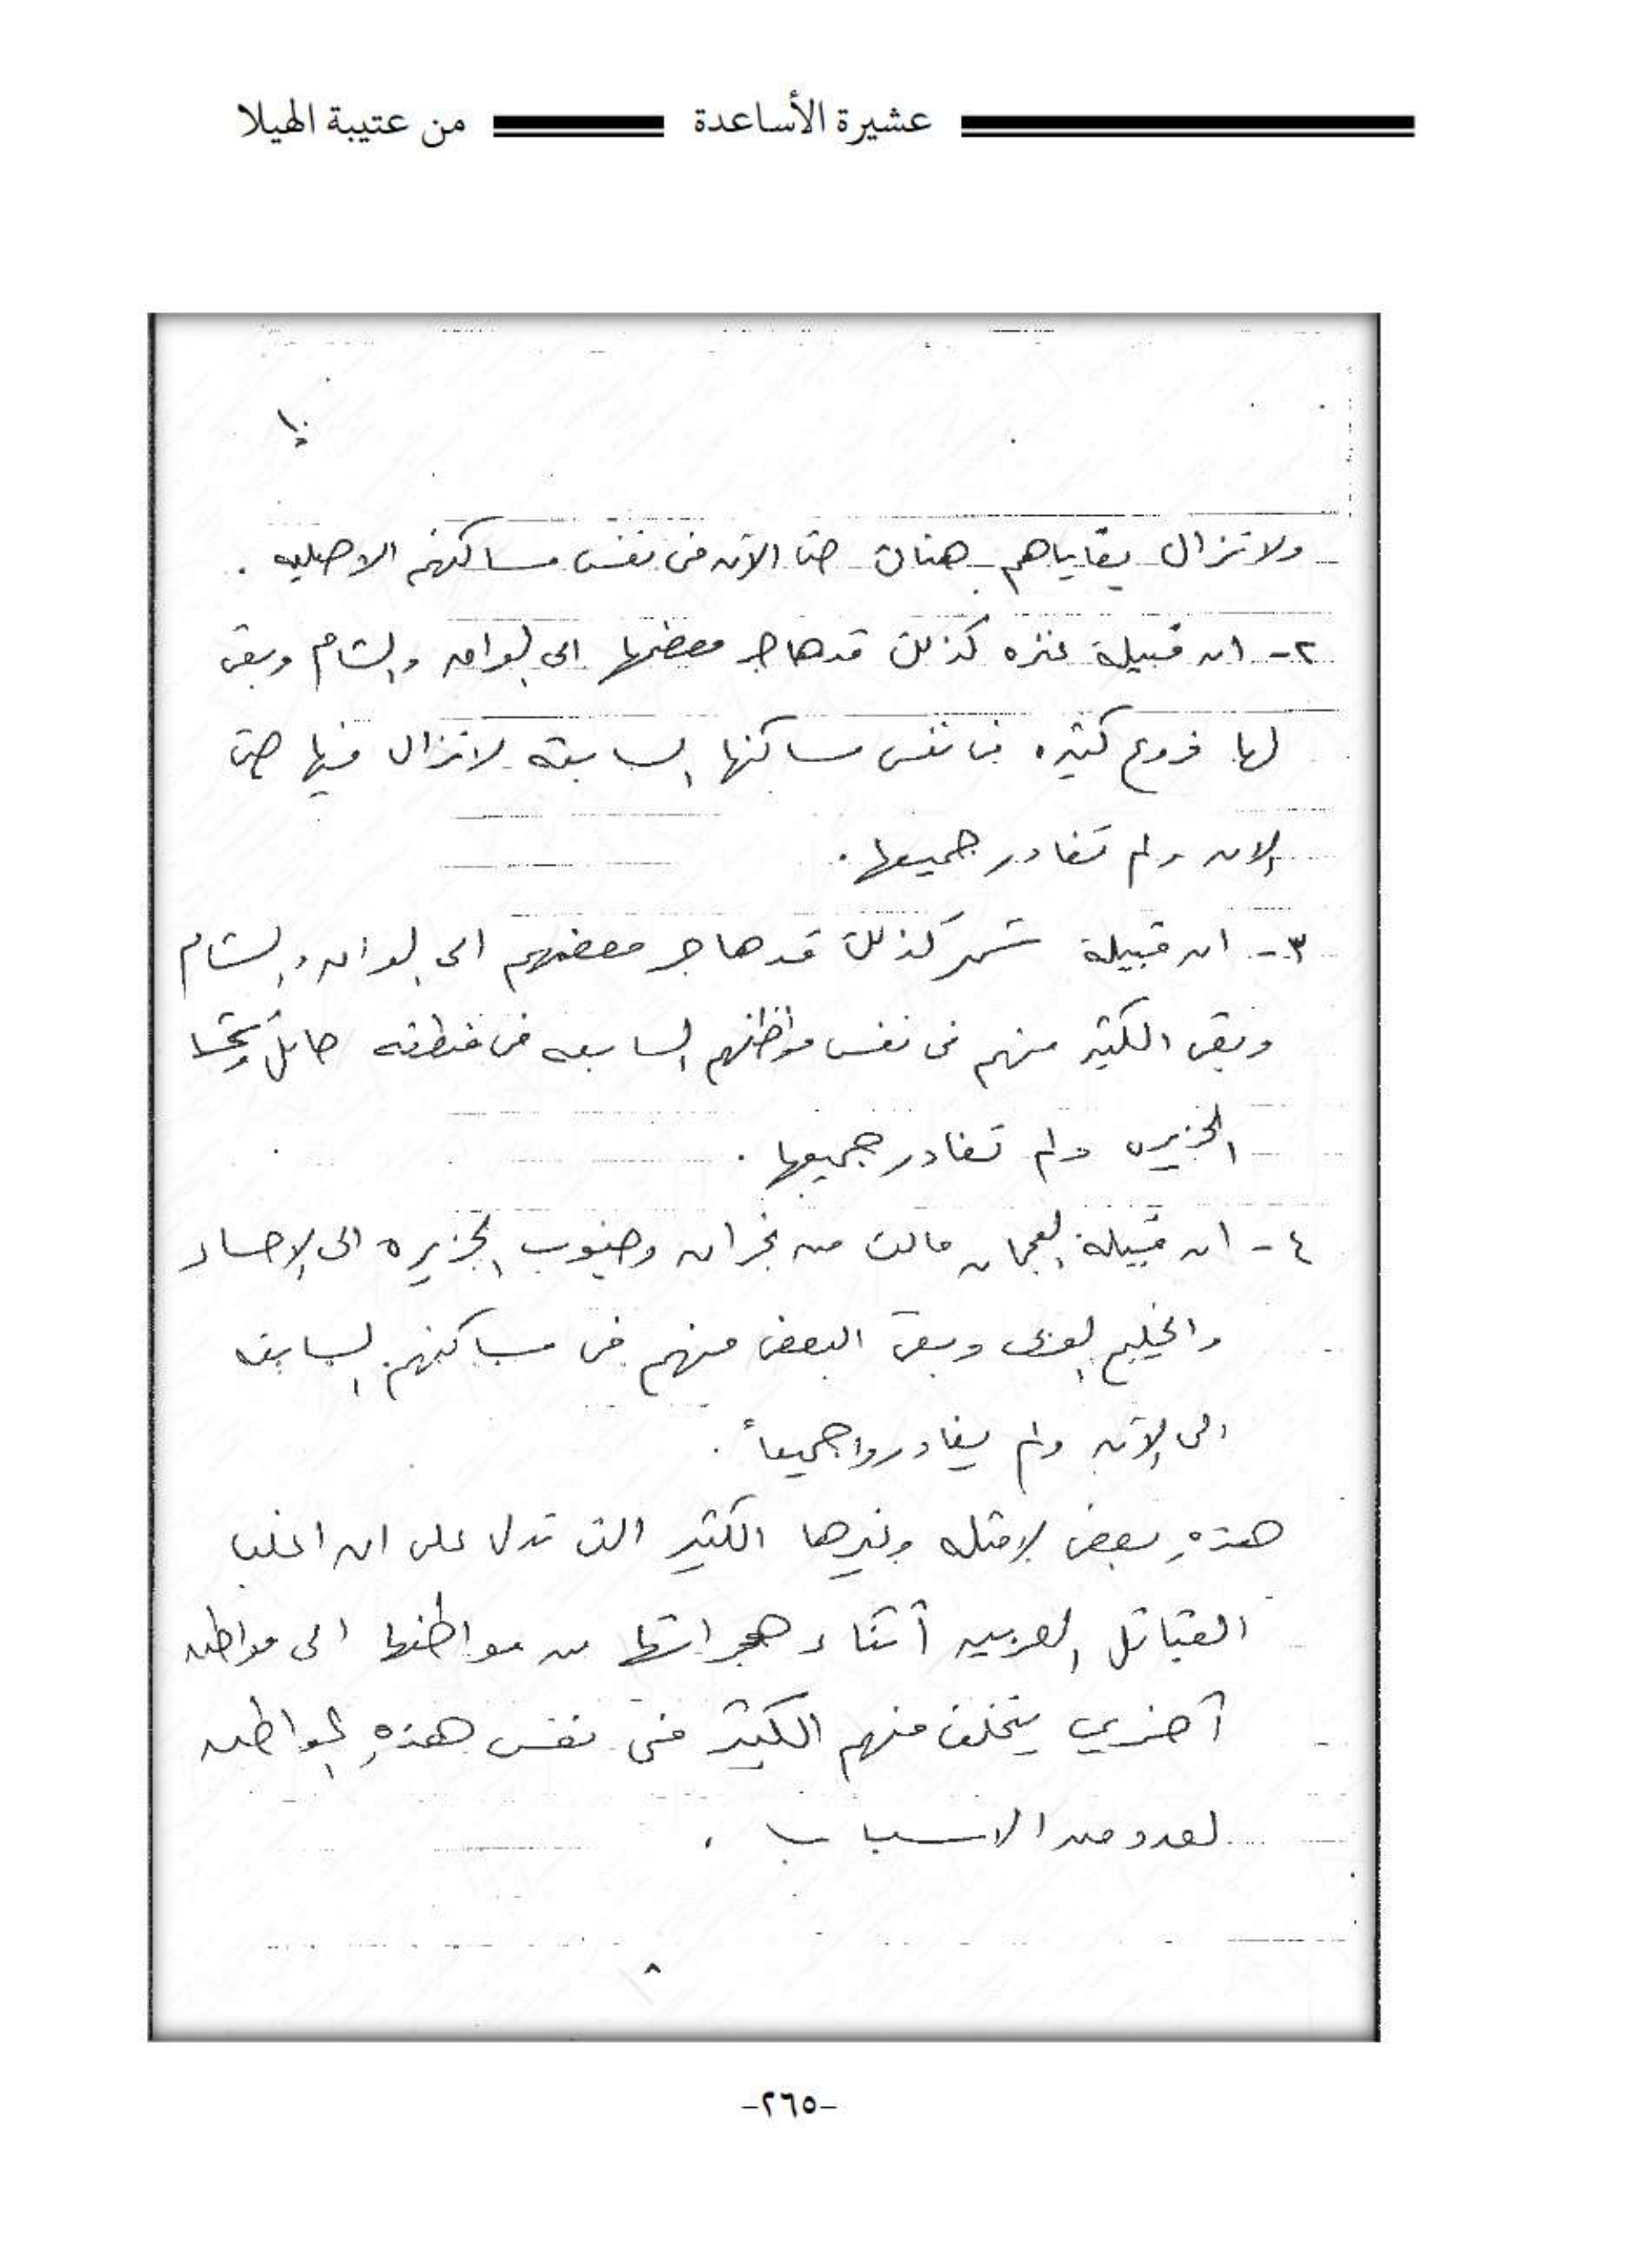 عشيرة الأساعدة من عتيبة الهيلا
ولا تزال بقاياهم هناك حتا الآن في نفس مساكنهم الاصليه .
٢- ان قبيلة عنزه كذلك قد هاجر بعضها الى العراق والشام وبقى
لها فروع كثيره في نفس مساكنها السابقة لا تزال فيها حتى
الان ولم تغادر جميعها .
٣- ان قبيلة شمر كذلك قد هاجر بعضهم الى العراق والشام
وبقى الكثير منهم في نفس مواطنهم السابقه في منطقه حائل
الجزيره ولم تغادر جميعها .
٤- ان قبيلة العجمان من نجران وجنوب الجزيره الى الاحساء
والخليج العربي وبقى البعض منهم في مساكنهم السابقه
الى الآن ولم يغادروا جميعاً .
هذه بعض الامثله وغيرها الكثير التي تدل على ان اغلب
القبائل العربيه أثناء هجراتها من مواطنها الى مواطن
آخري يتخلف منهم الكثير في نفس هذه المواطن
لعدد من الاسباب .
٨
-٢٦٥-